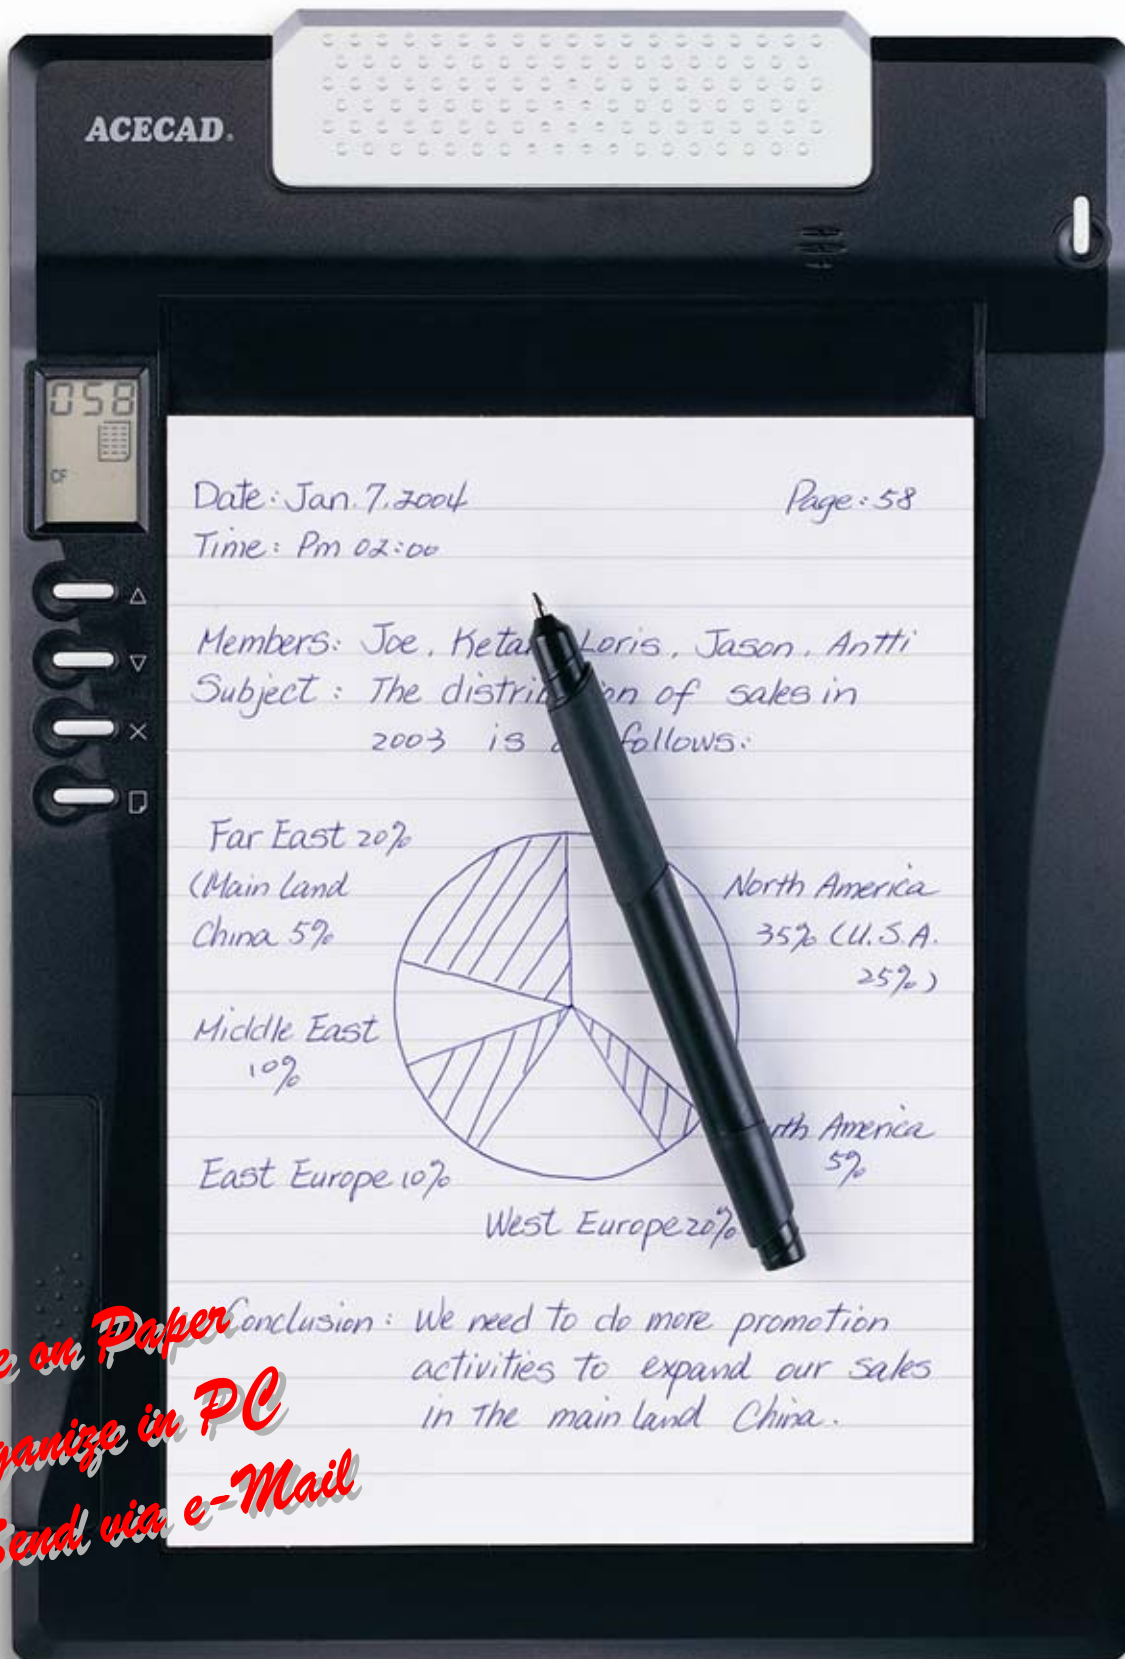 ACECAD.
058
CF
Date: Jan. 7. 2004 Page: 58
Time: Pm 02:00
Members: Joe, Loris, Jason, Antti
Subject: The of sales in
2003 is follows:
Far East 20%
(Main land
China 5%
North America
35% (U.S.A.
25%)
Middle East
10%
America
5%
East Europe 10%
West Europe 20%
Conclusion: We need to do more promotion
activities to expand our sales
in the main land China.
on Paper
in PC
Send via e-Mail